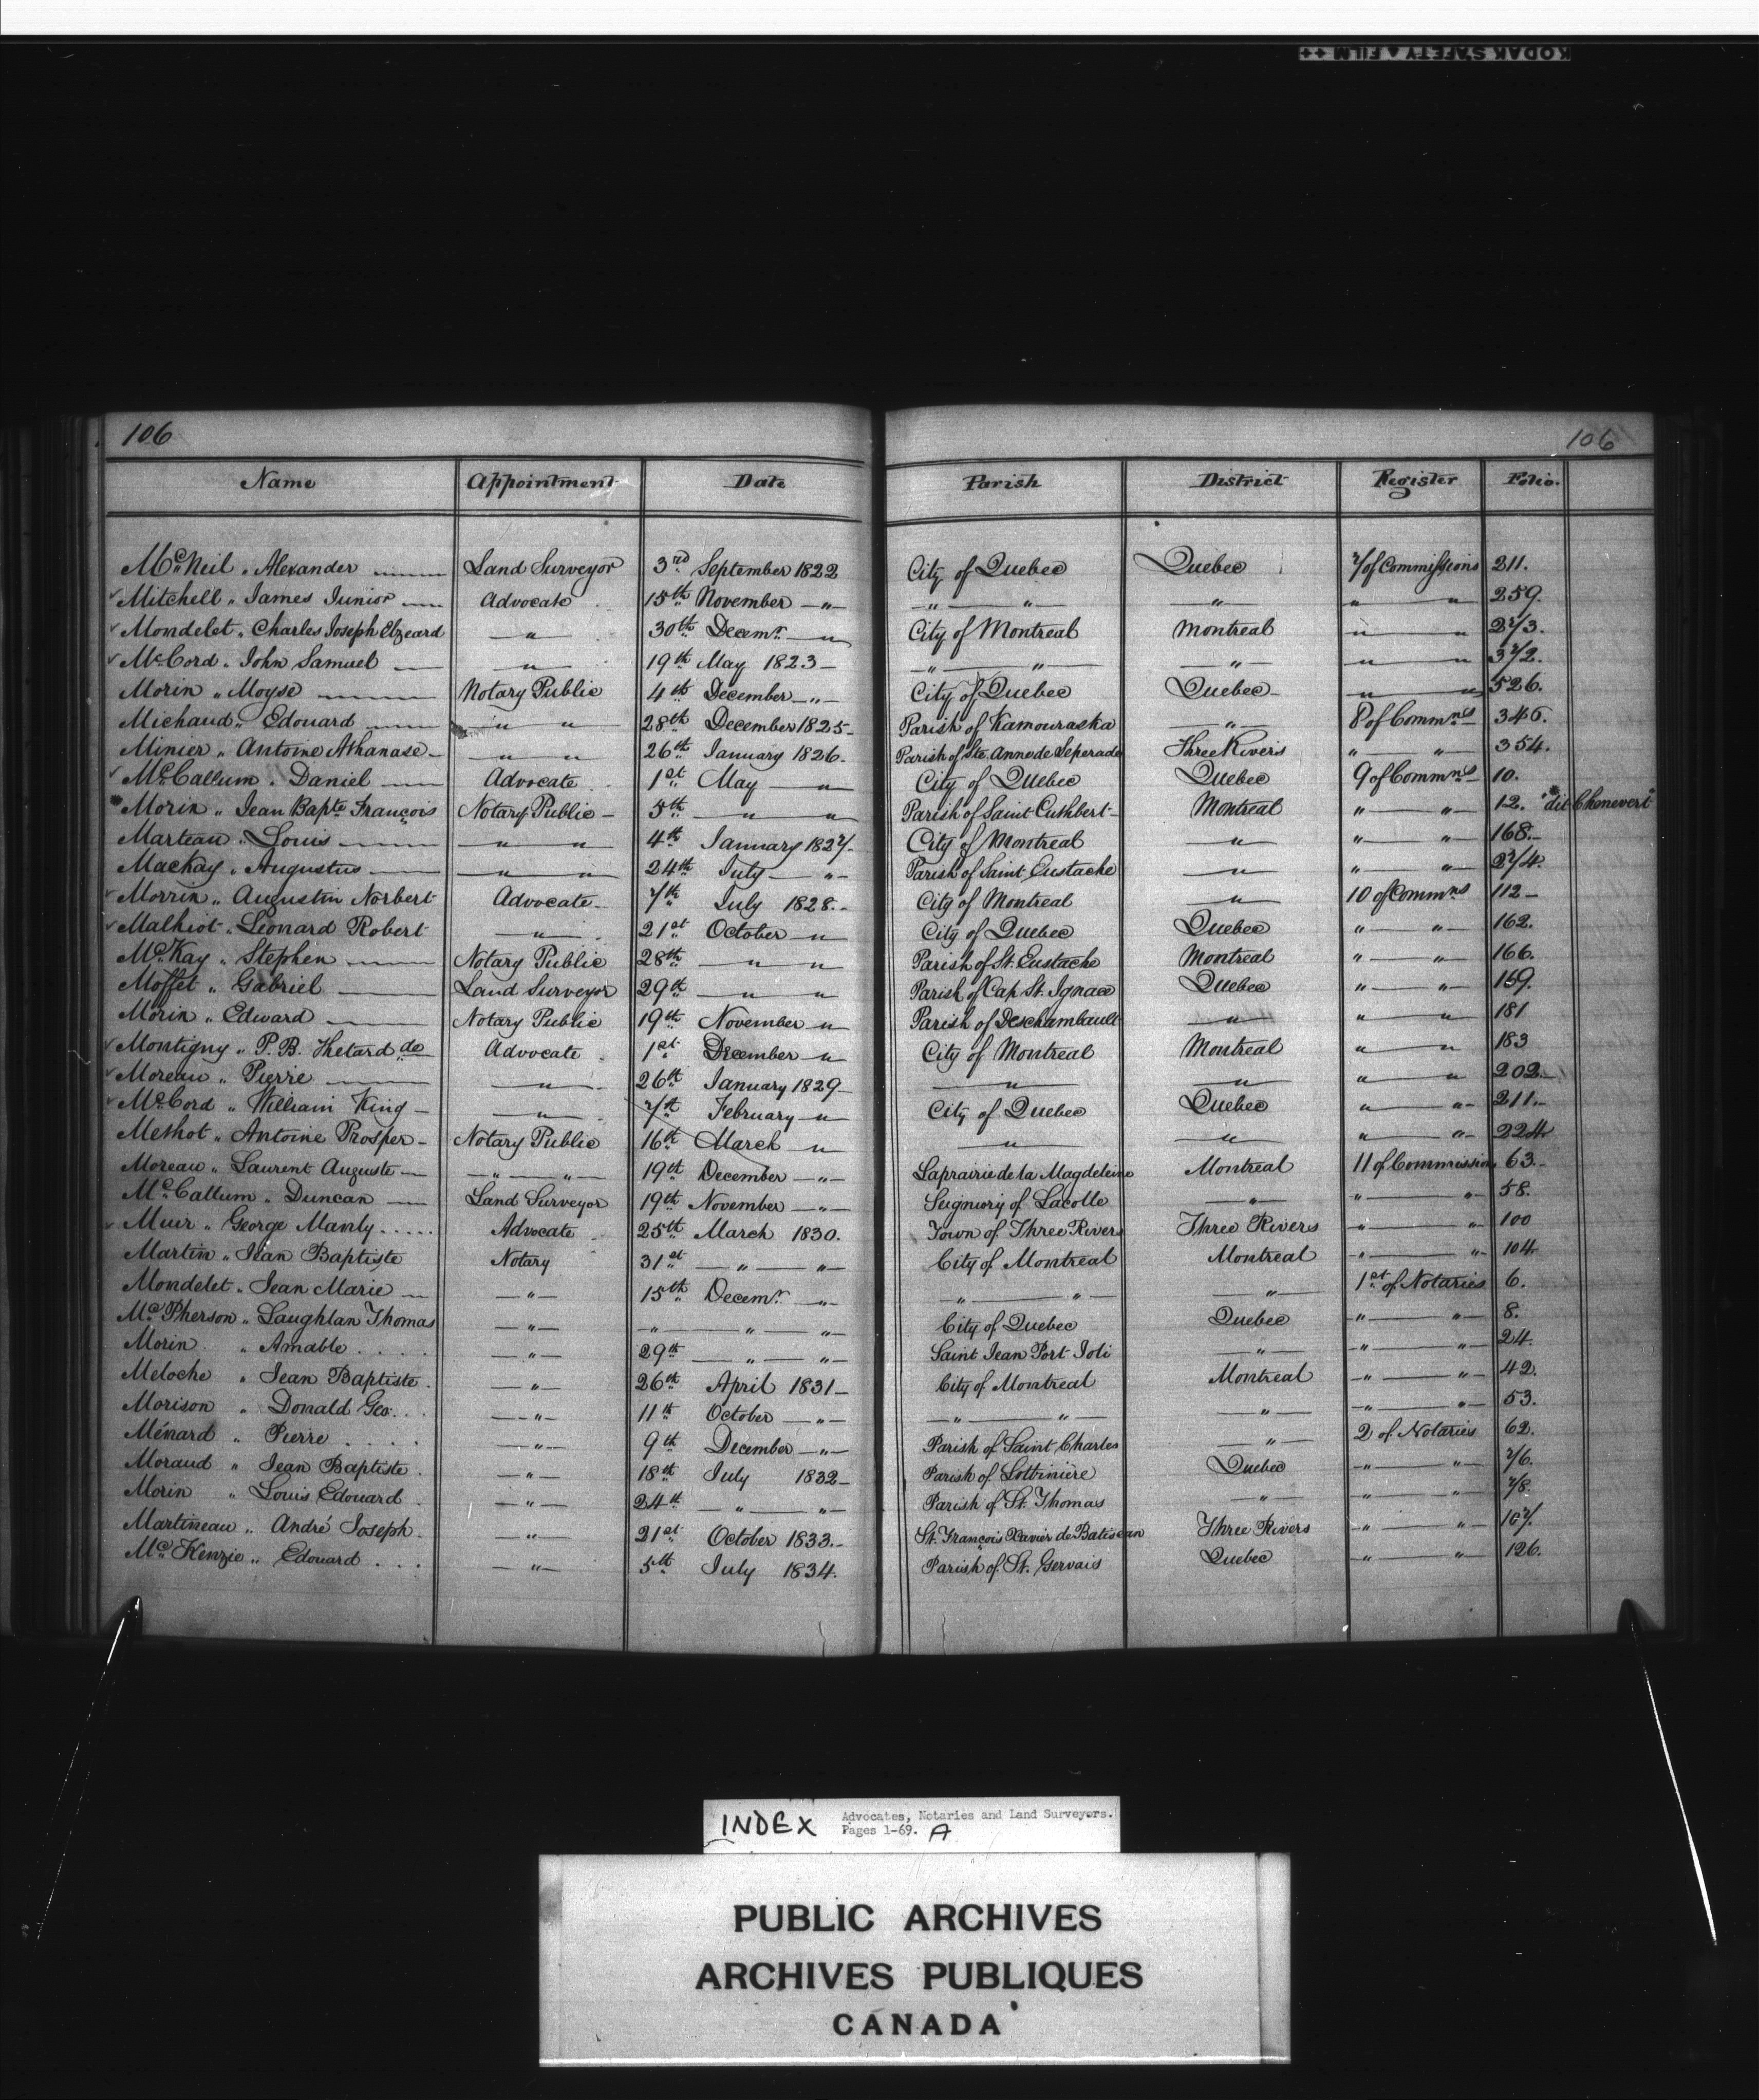 KODAK SAFETY ▲ FILM ++
106 106
Name Appointment Date Parish District Register Folio.
McNeil " Alexander Land Surveyor 3rd September 1822 City of Quebec Quebec 7 of Commissions 211.
Mitchell " James Junior Advocate 15th November " " " " " " 259.
Mondelet " Charles Joseph Elzeard " 30th Decemr. " City of Montreal Montreal " " 273.
McCord " John Samuel " 19th May 1823 " " " " " 372.
Morin " Moyse Notary Public 4th December " City of Quebec Quebec " " 526.
Michaud " Edouard " " 28th December 1825 Parish of Kamouraska " 8 of Commns 346.
Minier " Antoine Athanase " " 26th January 1826. Parish of Ste. Anne de Leperade Three Rivers " " 354.
McCallum " Daniel Advocate 1st May " City of Quebec Quebec 9 of Commns 10.
Morin " Jean Bapte. François Notary Public 5th " " Parish of Saint Cuthbert Montreal " " 12. "dit Chenevert"
Marteau " Louis " " 4th January 1827. City of Montreal " " " 168.
Mackay " Augustus " " 24th July " Parish of Saint Eustache " " " 274.
Morrin " Augustin Norbert Advocate 7th July 1828. City of Montreal " 10 of Commns 112
Malhiot " Leonard Robert " 21st October " City of Quebec Quebec " " 162.
McKay " Stephen Notary Public 28th " " Parish of St. Eustache Montreal " " 166.
Moffet " Gabriel Land Surveyor 29th " " Parish of Cap St. Ignace Quebec " " 159.
Morin " Edward Notary Public 19th November " Parish of Deschambault " " " 181
Montigny " P. B. Thetard de Advocate 1st December " City of Montreal Montreal " " 183
Moreau " Pierre " 26th January 1829 " " " " 202
McCord " William King " 7th February " City of Quebec Quebec " " 211.
Methot " Antoine Prosper Notary Public 16th March " " " " " 224
Moreau " Laurent Auguste " " 19th December " Laprairie de la Magdeleine Montreal 11 of Commission 63.
McCallum " Duncan Land Surveyor 19th November " Seigniory of Lacolle " " " 58.
Muir " George Manly Advocate 25th March 1830. Town of Three Rivers Three Rivers " " 100
Martin " Jean Baptiste Notary 31st " " City of Montreal Montreal " " 104
Mondelet " Jean Marie " 15th Decemr. " " " " 1st of Notaries 6.
McPherson " Laughlan Thomas " " " " City of Quebec Quebec " " 8.
Morin " Amable " 29th " " Saint Jean Port Joli " " " 24.
Meloche " Jean Baptiste " 26th April 1831 City of Montreal Montreal " " 42.
Morison " Donald Geo. " 11th October " " " " " " 53.
Ménard " Pierre " 9th December " Parish of Saint Charles " 2 of Notaries 62.
Moraud " Jean Baptiste " 18th July 1832 Parish of Lotbinière Quebec " " 76.
Morin " Louis Edouard " 24th " " Parish of St. Thomas " " " 78.
Martineau " André Joseph " 21st October 1833. St. François Xavier de Batiscan Three Rivers " " 107.
McKenzie " Edouard " 5th July 1834. Parish of St. Gervais Quebec " " 126.
INDEX Advocates, Notaries and Land Surveyors.
Pages 1-69. A
PUBLIC ARCHIVES
ARCHIVES PUBLIQUES
CANADA